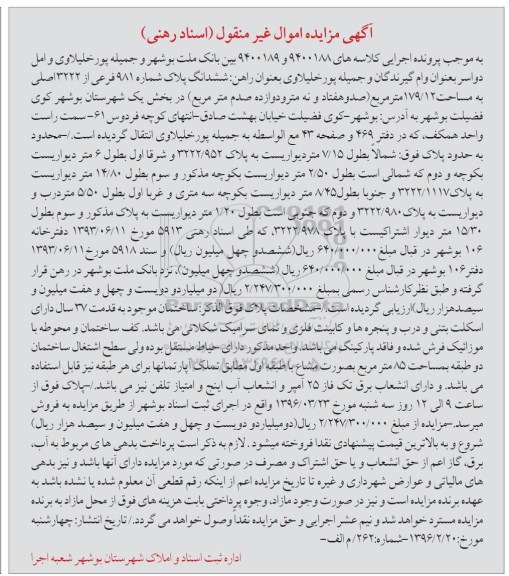 آگهی مزایده اموال غیر منقول (اسناد رهنی)
به موجب پرونده اجرایی کلاسه های ۹۴۰۰۱۸۸ و ۹۴۰۰۱۸۹ بین بانک ملت بوشهر و جمیله پورخلیلاوی و امل
دواسر بعنوان وام گیرندگان و جمیله پورخلیلاوی بعنوان راهن: ششدانگ پلاک شماره ۹۸۱ فرعی از ۳۲۲۲ اصلی
به مساحت ۱۷۹/۱۲ مترمربع (صدوهفتاد و نه مترودوازده صدم متر مربع) در بخش یک شهرستان بوشهر کوی
فضیلت بوشهر به آدرس: بوشهر-کوی فضیلت خیابان بهشت صادق-انتهای کوچه فردوس ۶۱- سمت راست
واحد همکف، که در دفتر ۴۶۹ و صفحه ۴۳ مع الواسطه به جمیله پورخلیلاوی انتقال گردیده است./-محدود
به حدود پلاک فوق: شمالاً بطول ۷/۱۵ متردیواریست به پلاک ۳۲۲۲/۹۵۲ و شرقا اول بطول ۶ متر دیواریست
بکوچه و دوم که شمالی است بطول ۲/۵۰ متر دیواریست بکوچه مذکور و سوم بطول ۱۴/۸۰ متر دیواریست
به پلاک ۳۲۲۲/۱۱۱۷ و جنوبا بطول ۸/۴۵ متر دیواریست بکوچه سه متری و غربا اول بطول ۵/۵۰ متردرب و
دیواریست به پلاک ۳۲۲۲/۹۸۰ و دوم که جنوبی است بطول ۱/۲۰ متر دیواریست به پلاک مذکور و سوم بطول
۱۵/۳۰ متر دیوار اشتراکیست با پلاک ۳۲۲۲/۹۷۸، که طی اسناد رهنی ۵۹۱۳ مورخ ۱۳۹۳/۰۶/۱۱ دفترخانه
۱۰۶ بوشهر در قبال مبلغ ۶۴۰/۰۰۰/۰۰۰ ریال (ششصدو چهل میلیون ریال) و سند ۵۹۱۸ مورخ ۱۳۹۳/۰۶/۱۱
دفتر ۱۰۶ بوشهر در قبال مبلغ ۶۴۰/۰۰۰/۰۰۰ ریال (ششصدو چهل میلیون)، نزد بانک ملت بوشهر در رهن قرار
گرفته و طبق نظرکارشناس رسمی بمبلغ ۲/۲۴۷/۳۰۰/۰۰۰ ریال( دو میلیاردو دویست و چهل و هفت میلیون و
سیصدهزار ریال) ارزیابی گردیده است./-مشخصات پلاک فوق الذکر: ساختمان موجود به قدمت ۳۷ سال دارای
اسکلت بتنی و درب و پنجره ها و کابینت فلزی و نمای سرامیک شکلاتی می باشد. کف ساختمان و محوطه با
موزائیک فرش شده و فاقد پارکینگ می باشد. واحد مذکور دارای حیاط مستقل بوده ولی سطح اشتغال ساختمان
دو طبقه بمساحت ۸۵ متر مربع بصورت مشاع با طبقه اول مطابق تملک آپارتمانها برای هر طبقه نیز قابل استفاده
می باشد. و دارای انشعاب برق تک فاز ۲۵ آمپر و انشعاب آب اینچ و امتیاز تلفن نیز می باشد./-پلاک فوق از
ساعت ۹ الی ۱۲ روز سه شنبه مورخ ۱۳۹۶/۰۳/۲۳ واقع در اجرای ثبت اسناد بوشهر از طریق مزایده به فروش
میرسد.-مزایده از مبلغ ۲/۲۴۷/۳۰۰/۰۰۰ ریال(دومیلیاردو دویست و چهل و هفت میلیون و سیصد هزار ریال)
شروع و به بالاترین قیمت پیشنهادی نقدا فروخته میشود . لازم به ذکر است پرداخت بدهی های مربوط به آب،
برق، گاز اعم از حق انشعاب و یا حق اشتراک و مصرف در صورتی که مورد مزایده دارای آنها باشد و نیز بدهی
های مالیاتی و عوارض شهرداری و غیره تا تاریخ مزایده اعم از اینکه رقم قطعی آن معلوم شده یا نشده باشد به
عهده برنده مزایده است و نیز در صورت وجود مازاد، وجوه پرداختی بابت هزینه های فوق از محل مازاد به برنده
مزایده مسترد خواهد شد و نیم عشر اجرایی و حق مزایده نقداً وصول خواهد می گردد./ تاریخ انتشار: چهارشنبه
مورخ: ۱۳۹۶/۲/۲۰-شماره: ۲۶۲/ م الف-
اداره ثبت اسناد و املاک شهرستان بوشهر شعبه اجرا